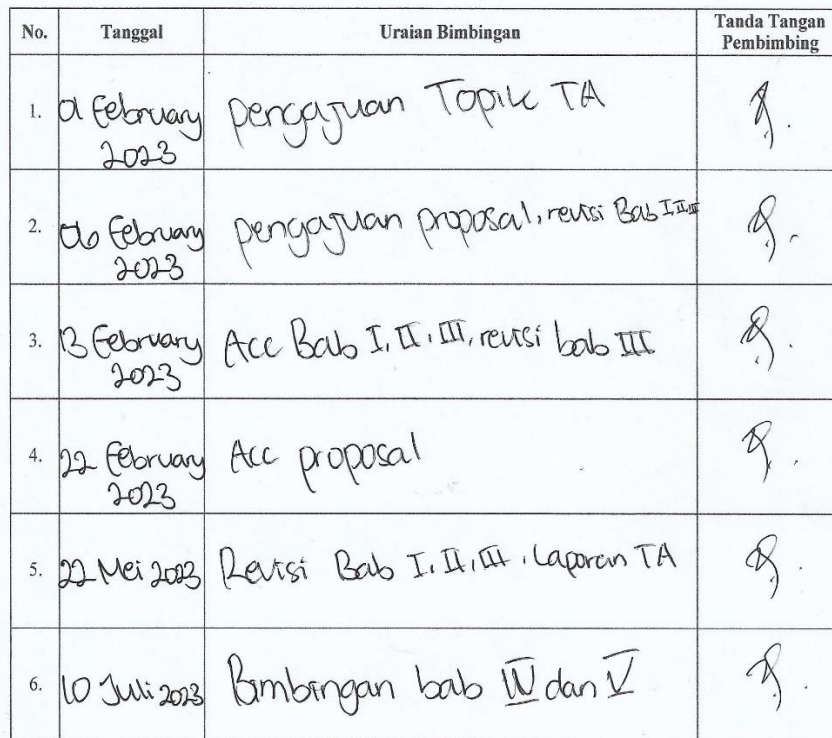 No. Tanggal Uraian Bimbingan Tanda Tangan Pembimbing
1. 01 February 2023 pengajuan Topik TA
2. 06 February 2023 pengajuan proposal, revisi Bab I, II, III
3. 13 February 2023 Acc Bab I, II, III, revisi bab III
4. 22 February 2023 Acc proposal
5. 22 Mei 2023 Revisi Bab I, II, III, Laporan TA
6. 10 Juli 2023 Bimbingan bab IV dan V